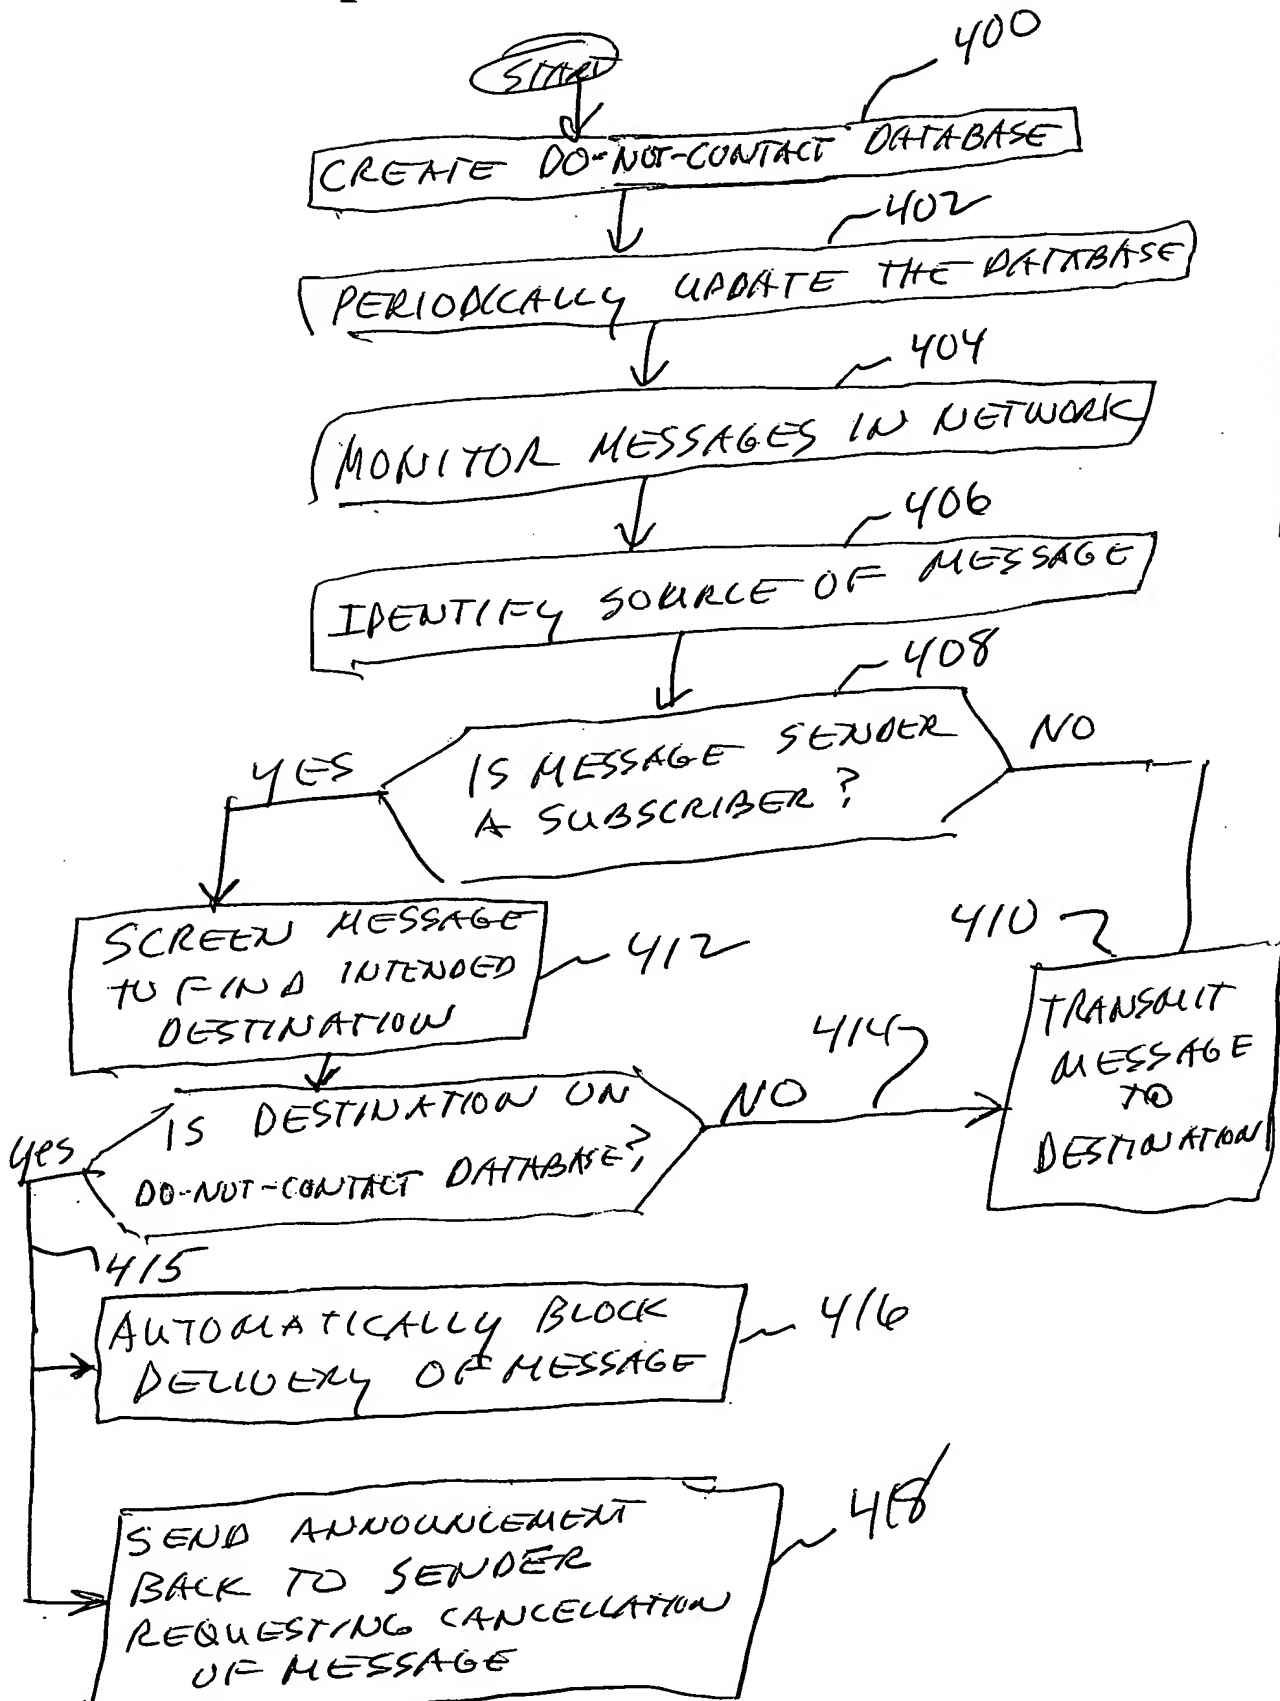 START
400
CREATE DO-NOT-CONTACT DATABASE
402
PERIODICALLY UPDATE THE DATABASE
404
MONITOR MESSAGES IN NETWORK
406
IDENTIFY SOURCE OF MESSAGE
408
IS MESSAGE SENDER
A SUBSCRIBER?
YES
NO
SCREEN MESSAGE
TO FIND INTENDED
DESTINATION
412
410
TRANSMIT
MESSAGE
TO
DESTINATION
414
IS DESTINATION ON
DO-NOT-CONTACT DATABASE?
NO
yes
415
AUTOMATICALLY BLOCK
DELIVERY OF MESSAGE
416
SEND ANNOUNCEMENT
BACK TO SENDER
REQUESTING CANCELLATION
OF MESSAGE
418